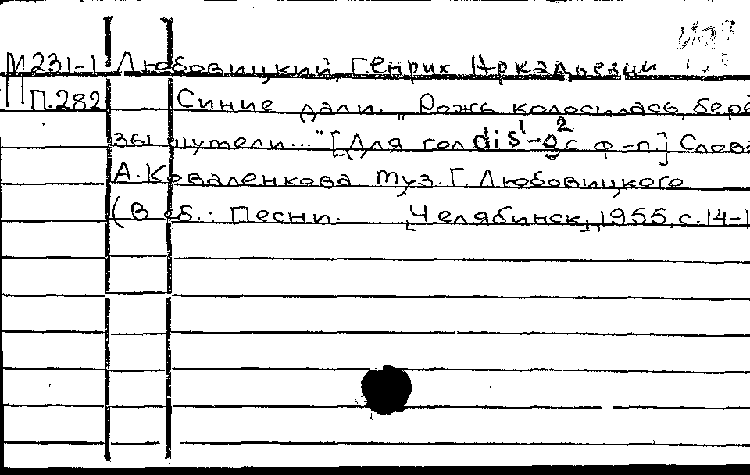 М231-1 Любовицкий, Генрих Аркадьевич
П.282 Синие дали. „Рожь колосилась, берё
зы шумели..." [Для гол. dis¹-g² с ф-п.] Слова
А. Коваленкова Муз. Г. Любовицкого
(В сб.: Песни. [Челябинск], 1955, с. 14-1